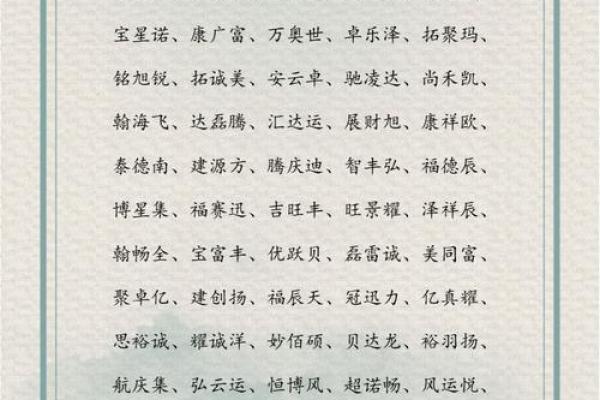 宝星诺、康广富、万奥世、卓乐泽、拓聚玛、
铭旭锐、拓诚美、安云卓、驰凌达、尚禾凯、
翰海飞、达磊腾、汇达运、展财旭、康祥欧、
泰德南、建源方、腾庆迪、智丰弘、福德辰、
博星集、福赛迅、吉旺丰、旺景耀、泽祥辰、
翰畅全、宝富丰、优跃贝、磊雷诚、美同富、
聚卓亿、建创扬、福辰天、冠迅力、亿真耀、
思裕诚、耀诚洋、妙佰硕、贝达龙、裕羽扬、
航庆集、弘云运、恒博风、超诺畅、风运悦、